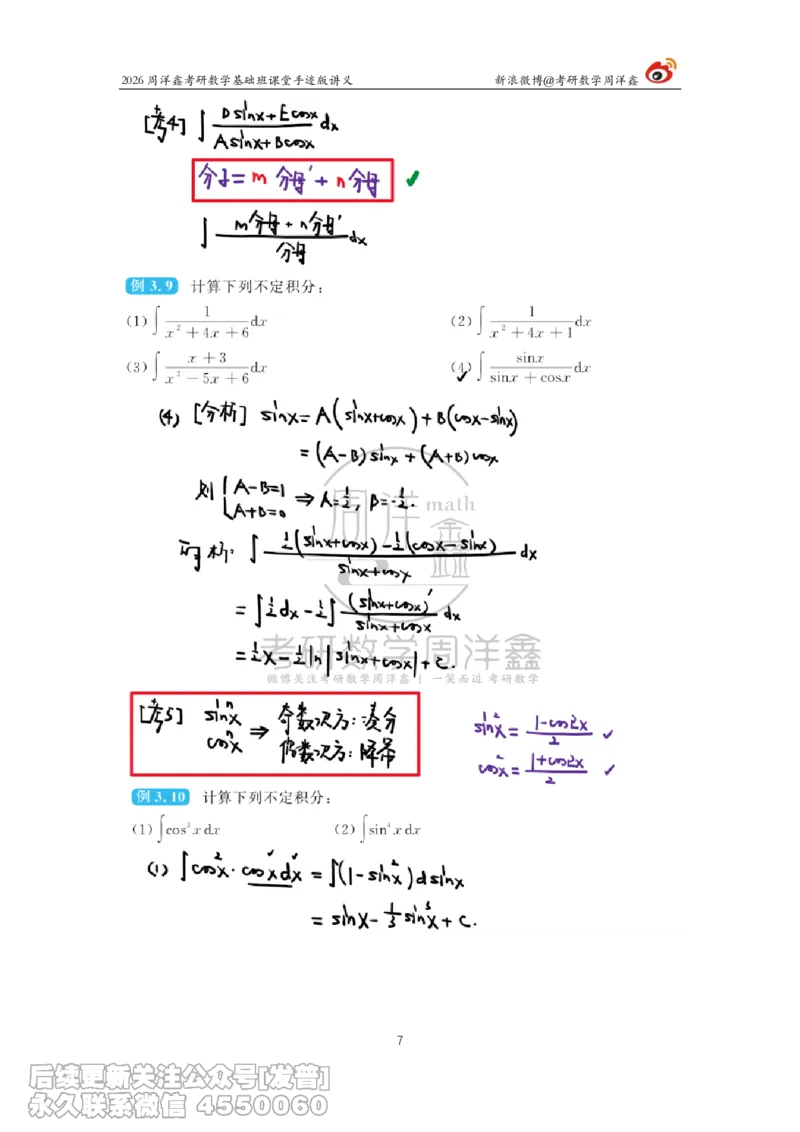 2026 周洋鑫考研数学基础班课堂手迹版讲义 新浪微博@考研数学周洋鑫
[考4] ∫ (Dsinx+Ecosx)/(Asinx+Bcosx) dx
分子=m 分母'+n 分母 ✓
∫ (m分母+n分母')/分母 dx
例 3.9 计算下列不定积分：
(1)∫ 1/(x²+4x+6) dx (2)∫ 1/(x²+4x+1) dx
(3)∫ (x+3)/(x²−5x+6) dx (4)∫ sinx/(sinx+cosx) dx
(4) [分析] sinx=A(sinx+cosx)+B(cosx-sinx)
=(A-B)sinx+(A+B)cosx
则 {A-B=1 A+B=0 ⇒ A=1/2, B=-1/2.
周洋鑫 math
原析: ∫ (1/2(sinx+cosx)-1/2(cosx-sinx))/(sinx+cosx) dx
=∫1/2dx-1/2∫ (sinx+cosx)'/(sinx+cosx) dx
=1/2x-1/2ln|sinx+cosx|+C.
考研数学周洋鑫
微博关注考研数学周洋鑫 | 一笑而过 考研数学
[考5] sinⁿx cosⁿx ⇒ 奇数次方:凑分
偶数次方:降幂
sin²x=(1-cos2x)/2 ✓
cos²x=(1+cos2x)/2 ✓
例 3.10 计算下列不定积分：
(1)∫cos³xdx (2)∫sin⁴xdx
(1) ∫cos²x·cosxdx=∫(1-sin²x)dsinx
=sinx-1/3sin³x+C.
7
后续更新关注公众号[发普]
永久联系微信 4550060